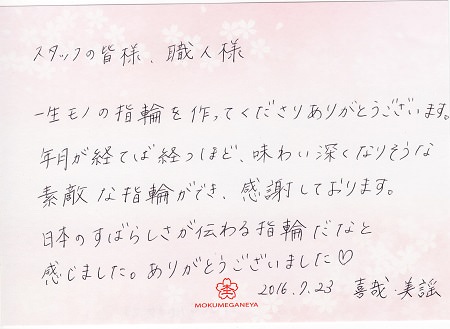 スタッフの皆様、職人様
一生モノの指輪を作ってくださりありがとうございます。
年月が経てば経つほど、味わい深くなりそうな
素敵な指輪ができ、感謝しております。
日本のすばらしさが伝わる指輪だなと
感じました。ありがとうございました♡
2016.7.23 喜哉・美謡
MOKUMEGANEYA